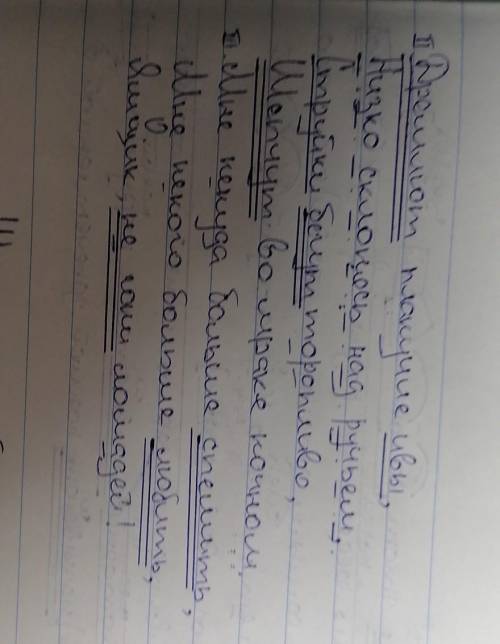 II Дремлют плакучие ивы,
Низко склонясь над ручьем,
Струйки бегут торопливо,
Шепчут во мраке ночном.
III. Мне некуда больше спешить,
Мне некого больше любить,
Ямщик, не гони лошадей!